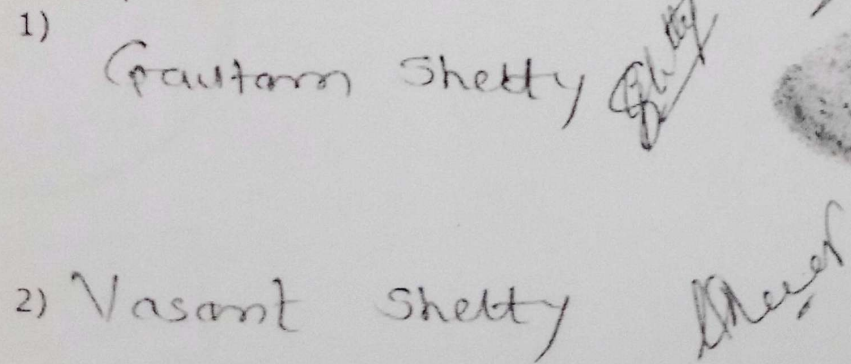 1)
Gautam Shetty
2) Vasant Shetty